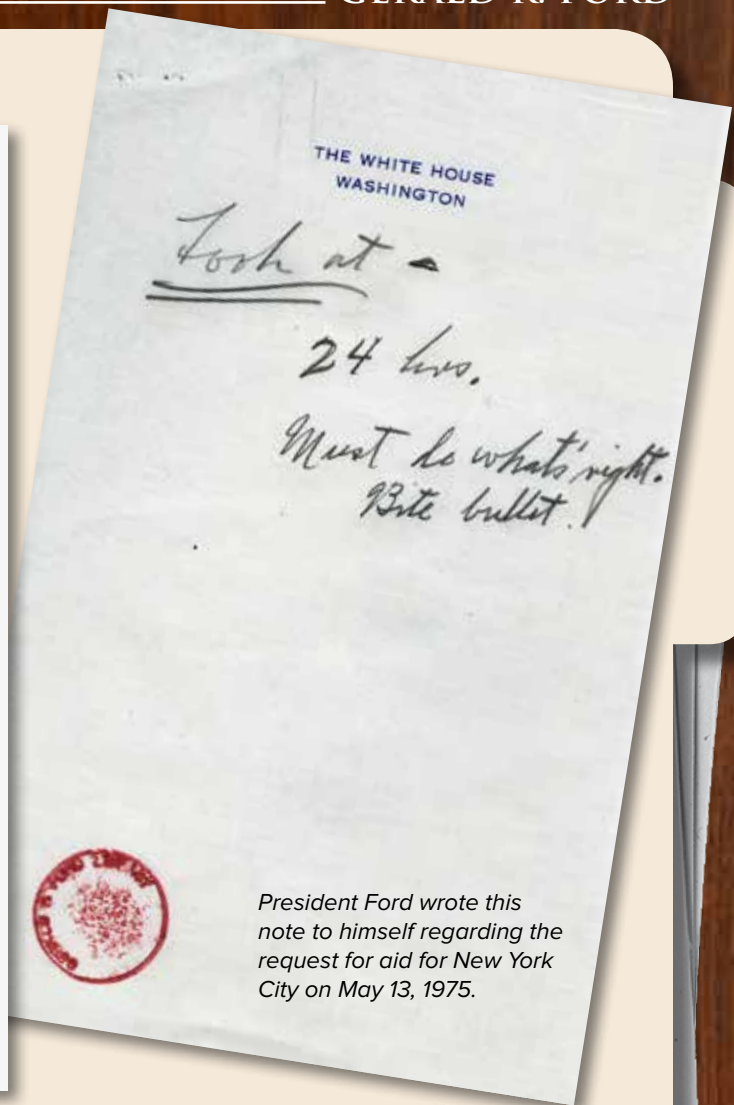 GERALD R. FORD
THE WHITE HOUSE
WASHINGTON
Look at -
24 hrs.
Must do what's right.
Bite bullet.
President Ford wrote this
note to himself regarding the
request for aid for New York
City on May 13, 1975.